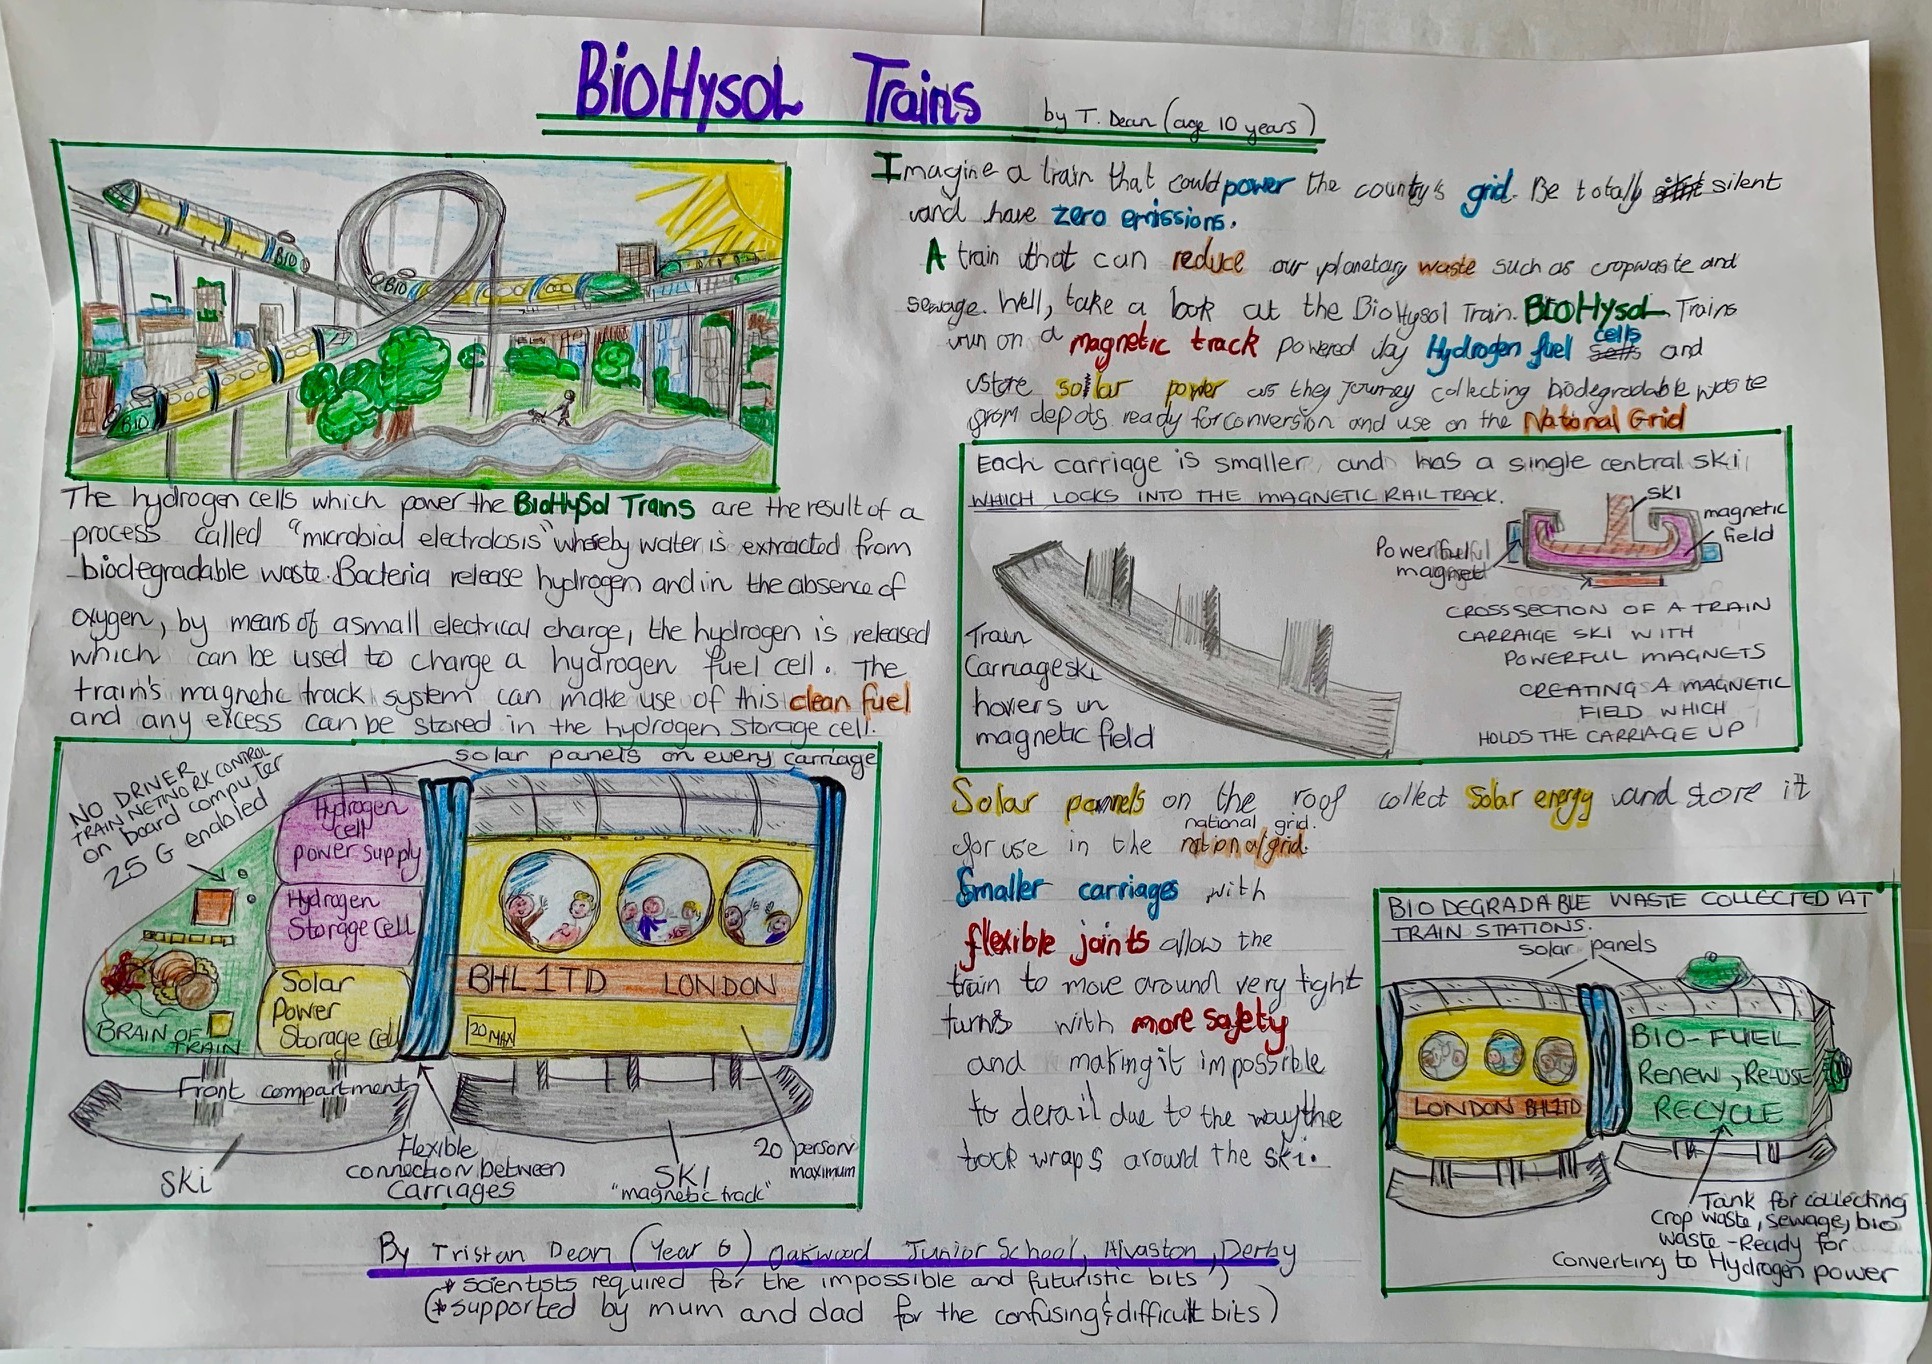 BioHysol Trains by T. Dean (age 10 years)
BIO
BIO
BIO
Imagine a train that could power the country's grid. Be totally silent
and have zero emissions.
A train that can reduce our planetary waste such as cropwaste and
sewage. Well, take a look at the BioHysol Train. BioHysol Trains
run on a magnetic track powered by Hydrogen fuel cells and
store solar power as they journey collecting biodegradable waste
from depots ready for conversion and use on the National Grid
The hydrogen cells which power the BioHySol Trains are the result of a
process called "microbial electrolosis" whereby water is extracted from
biodegradable waste. Bacteria release hydrogen and in the absence of
oxygen, by means of a small electrical charge, the hydrogen is released
which can be used to charge a hydrogen fuel cell. The
train's magnetic track system can make use of this clean fuel
and any excess can be stored in the hydrogen storage cell.
Each carriage is smaller and has a single central ski
WHICH LOCKS INTO THE MAGNETIC RAIL TRACK.
SKI
magnetic
field
Powerful
magnet
Train
Carriage ski
hovers in
magnetic field
CROSS SECTION OF A TRAIN
CARRAIGE SKI WITH
POWERFUL MAGNETS
CREATING A MAGNETIC
FIELD WHICH
HOLDS THE CARRIAGE UP
solar panels on every carriage
NO DRIVER
TRAIN NETWORK CONTROL
on board computer
25 G enabled
Hydrogen
cell
power supply
Hydrogen
Storage Cell
Solar
Power
Storage Cell
BRAIN OF
TRAIN
BHL1TD LONDON
20 MAX
Front compartment
Ski
Flexible
connection between
Carriages
SKI
"magnetic track"
20 person
maximum
Solar pannels on the roof collect Solar energy and store it
national grid.
for use in the national grid.
Smaller carriages with
flexible joints allow the
train to move around very tight
turns with more safety
and making it impossible
to derail due to the way the
track wraps around the ski.
BIODEGRADABLE WASTE COLLECTED AT
TRAIN STATIONS.
solar panels
BIO-FUEL
Renew, Re-USE
RECYCLE
LONDON BHL1TD
Tank for collecting
crop waste, sewage, bio
waste - Ready for
Converting to Hydrogen power
By Tristan Dean (Year 6) Oakwood Junior School, Alvaston, Derby
* scientists required for the impossible and futuristic bits
(* supported by mum and dad for the confusing & difficult bits)